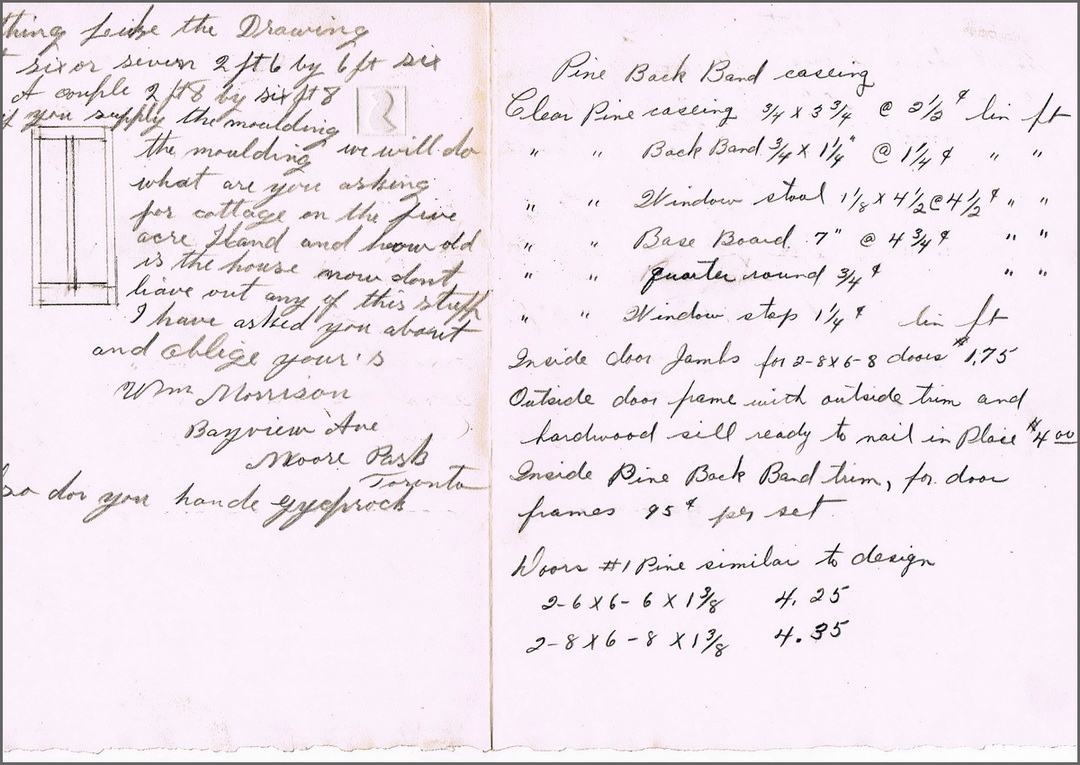 thing like the Drawing
six or seven 2 ft 6 by 6 ft six
A couple 2 ft 8 by six ft 8
if you supply the moulding
the moulding we will do
what are you asking
for cottage on the five
acre Iland and how old
is the house now dont
leave out any of this stuff
I have asked you about
and oblige your's
Wm Morrison
Bayview Ave
Moore Park
Toronto
so do you hande gyeprock
Pine Back Band caseing
Clear Pine caseing 3/4 x 3 3/4 @ 2 1/2 ¢ lin ft
" " Back Band 3/4 x 1 1/4" @ 1 1/4 ¢ " "
" " Window stool 1 1/8 x 4 1/2 @ 4 1/2 ¢ " "
" " Base Board 7" @ 4 3/4 ¢ " "
" " quarter round 3/4 ¢ " "
" " Window stop 1 1/4 ¢ lin ft
Inside door Jambs for 2-8x6-8 doors $1.75
Outside door frame with outside trim and
hardwood sill ready to nail in Place $4 00
Inside Pine Back Band trim, for door
frames 95 ¢ per set
Doors #1 Pine similar to design
2-6 x 6-6 x 1 3/8 4.25
2-8 x 6-8 x 1 3/8 4.35